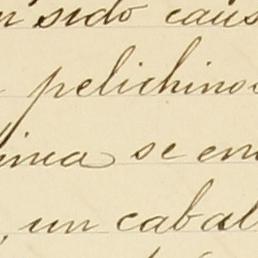 n sido caus
pelichinos
inea se en
, un cabal